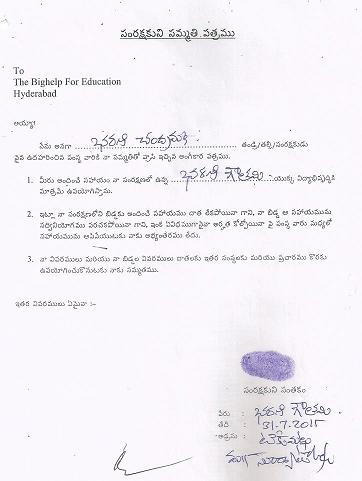 సంరక్షకుని సమ్మతి పత్రము
To
The Bighelp For Education
Hyderabad
అయ్యా!
నేను అనగా భరణి చంద్రమౌళి తండ్రి/తల్లి/సంరక్షకుడు
పైన ఉదహరించిన సంస్థ వారికి నా సమ్మతితో వ్రాసి ఇచ్చిన అంగీకార పత్రము.
1. మీరు అందించే సహాయం నా సంరక్షణలో ఉన్న భరణి గౌతమి యొక్క విద్యాభివృద్ధికి
మాత్రమే ఉపయోగిస్తాము.
2. ఇట్లూ నా సంరక్షణలోని బిడ్డకు అందించే సహాయము దాత లేకపోయినా గాని, నా బిడ్డ ఆ సహాయమును
సద్వినియోగము పరచకపోయినా గాని, ఇంకే ఏవిధముగానైనా అర్హత కోల్పోయినా పై సంస్థ వారు మధ్యలో
సహాయమును ఆపివేయుటకు నాకు అభ్యంతరము లేదు.
3. నా వివరములు మరియు నా బిడ్డల వివరములు దాతలకు ఇతర సంస్థలకు మరియు ప్రచారము కొరకు
ఉపయోగించుకొనుటకు నాకు సమ్మతము.
ఇతర వివరములు ఏమైనా :-
సంరక్షకుని సంతకం
పేరు : భరణి గౌతమి
తేది : 31-7-2015
అడ్రసు :